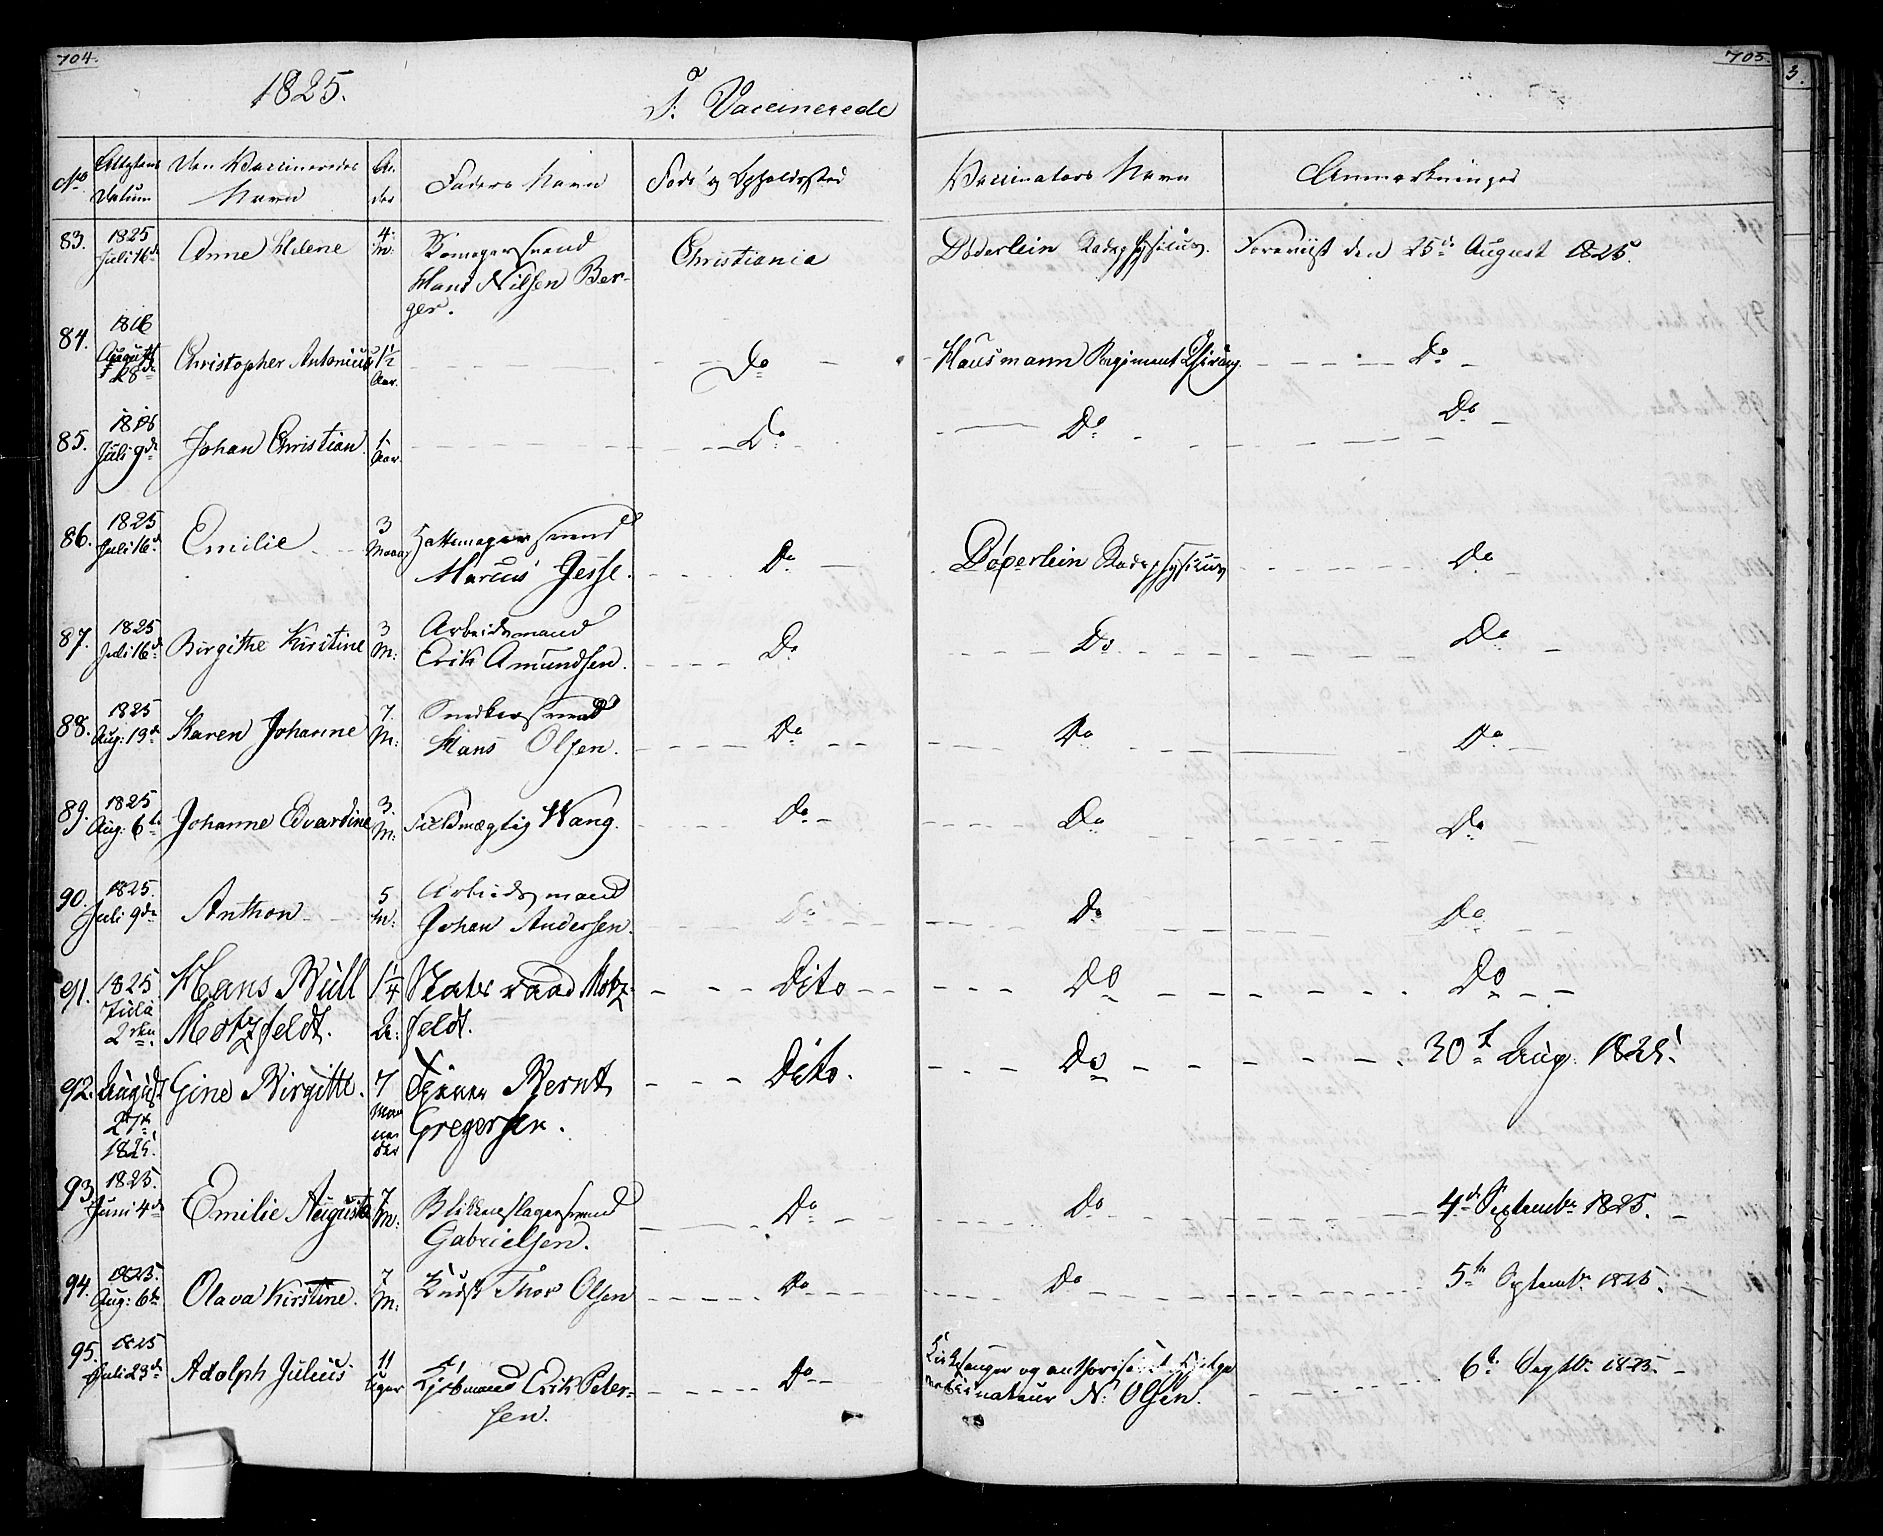 704.
705.
1825.
J. Vaccinerede
No Attestens Datum Den Vaccineredes Navn Al-der Faders Navn Føde og Opholdssted Vaccinators Navn Anmærkninger
83. 1825 Juli 16de Anne Helene 4 M: Hans Nilsen Ber-ger. Christiania Døderlein Radsphysicus. Foreviist den 25de August 1825.
84. 1816 August 28de Christopher Antonius 1½ Aar. Do Hausmann Regiment Chirurg. Do
85. 1816 Juli 9de Johan Christian 1 Aar. Do Do Do
86. 1825 Juli 16d Emilie 3 Maan Hattemagersvend Marcus Jesse. Do Døderlein Radsphysicus Do
87. 1825 Juli 16d Birgithe Kirstine 3 M: Arbeidsmand Erik Amundsen. Do Do Do
88. 1825 Aug: 13de Karen Johanne 7. M: Snedkersvend Hans Olsen. Do Do Do
89. 1825 Aug: 6te Johanne Edvardine 3. M: Fuldmægtig Wang. Do Do Do
90. 1825. Juli 9de Anthon 5 M: Arbeidsmand Johan Andersen. Do Do Do
91. 1825 Julii 2den. Hans Bull Motzfeldt. 1¼ A: Statsraad Motz-feldt. Dito Do Do
92. August 27de 1825. Gine Birgitte. 7 Maaneder Tjener Bernt Gregersen. Dito. Do 30t Aug. 1825.
93. 1825. Juni 4de Emilie Augusta 7 M: Blikkenslagersvend Gabrielsen. Do Do 4de Septembr 1825.
94. 1825. Aug: 6te Olava Kirstine. 7 M: Kudsk Thor Olsen Do Do 5te Septembr 1825.
95. 1825 Juli 23de Adolph Julius 11 Uger Kjøbmand Erik Peter-sen. Do Kirkesanger og authoriseret Hjelpevaccinateur N: Olsen. 6te Septbr 1825.